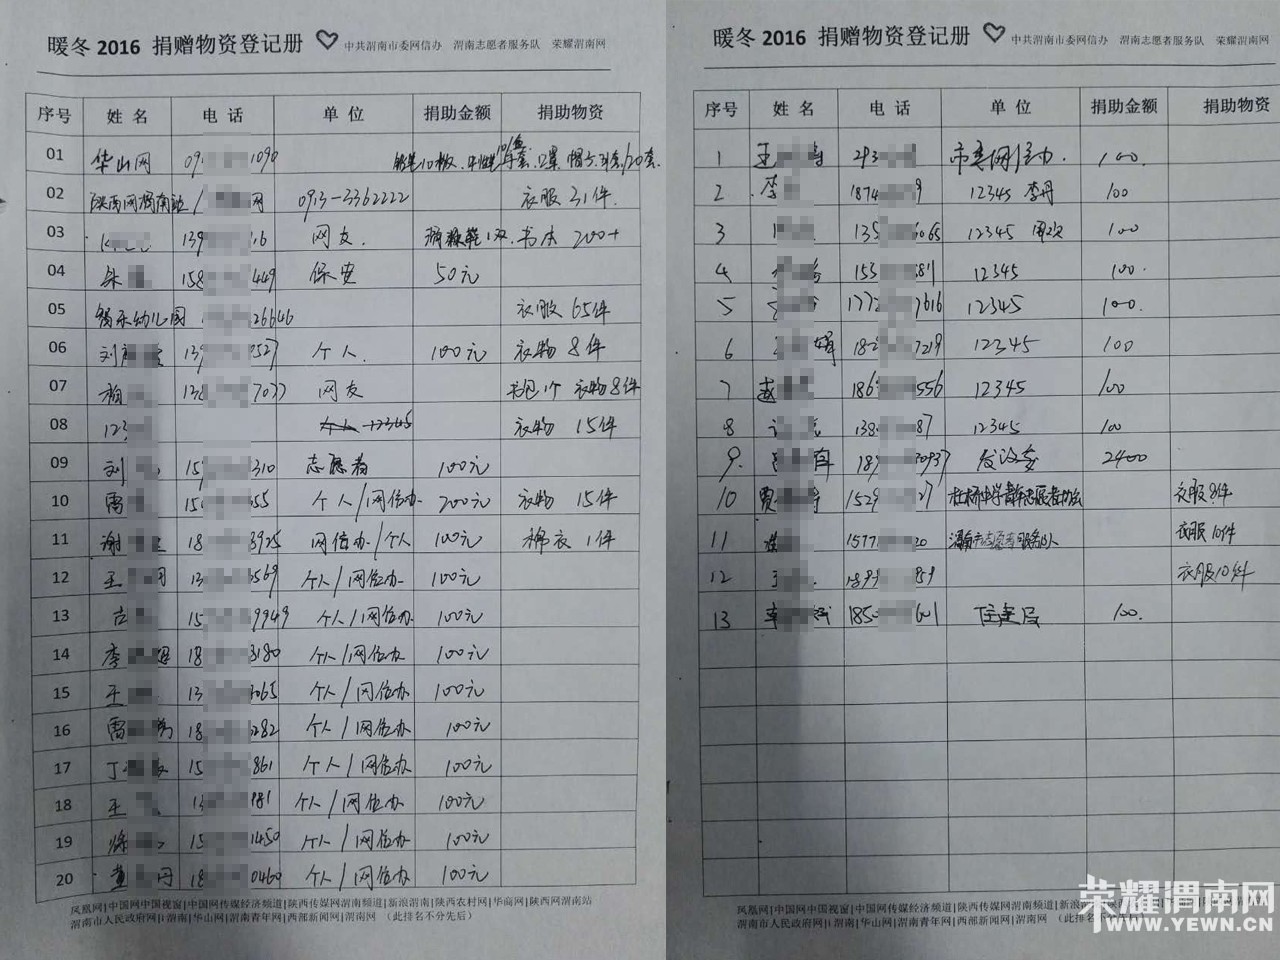 暖冬 2016 捐赠物资登记册 中共渭南市委网信办 渭南志愿者服务队 荣耀渭南网
序号 姓名 电话 单位 捐助金额 捐助物资
01 华山网 09 1090
02 陕西网渭南站 网 0913-3362222 衣服 31件.
03 139 16 网友. 1双. 书本 200+
04 朱 158 449 保安 50元
05 幼儿园 26646 衣服 65件
06 刘 139 527 个人. 100元 衣物 8件
07 138 7037 网友 书包1个 衣物8件
08 123 12345 衣物 15件
09 刘 15 310 志愿者 100元
10 雷 150 355 个人/网信办 200元 衣物 15件
11 谢 18 3925 网信办/个人 100元 棉衣 1件
12 王 13 569 个人/网信办 100元
13 15 9949 个人/网信办 100元
14 李 18 3180 个人/网信办 100元
15 王 13 065 个人/网信办 100元
16 雷 18 282 个人/网信办 100元
17 丁 15 861 个人/网信办 100元
18 王 13 981 个人/网信办 100元
19 15 1450 个人/网信办 100元
20 董 丹 18 0460 个人/网信办 100元
凤凰网|中国网中国视窗|中国网传媒经济频道|陕西传媒网渭南频道|新浪渭南|陕西农村网|华商网|陕西网渭南站
渭南市人民政府网|i渭南|华山网|渭南青年网|西部新闻网|渭南网 (此排名不分先后)
暖冬 2016 捐赠物资登记册 中共渭南市委网信办 渭南志愿者服务队 荣耀渭南网
序号 姓名 电话 单位 捐助金额 捐助物资
1 王 293 市委网信办. 100.
2 李 1874 9 12345 李丹 100
3 135 6065 12345 100
4 153 881 12345 100.
5 1772 7616 12345 100.
6 娟 182 7219 12345 100
7 赵 186 556 12345 100
8 138 87 12345 100
9. 189 30937 发改委 2400
10 贾 1529 27 衣服8件
11 1577 20 渭南市志愿者服务队 衣服10件
12 王 1899 959 衣服10件
13 1850 601 住建局 100.
凤凰网|中国网中国视窗|中国网传媒经济频道|陕西传媒网渭南频道|新浪
渭南市人民政府网|i渭南|华山网|渭南青年网|西部新闻网|渭南网 (此排名不分
荣耀渭南网
WWW.YEWN.CN